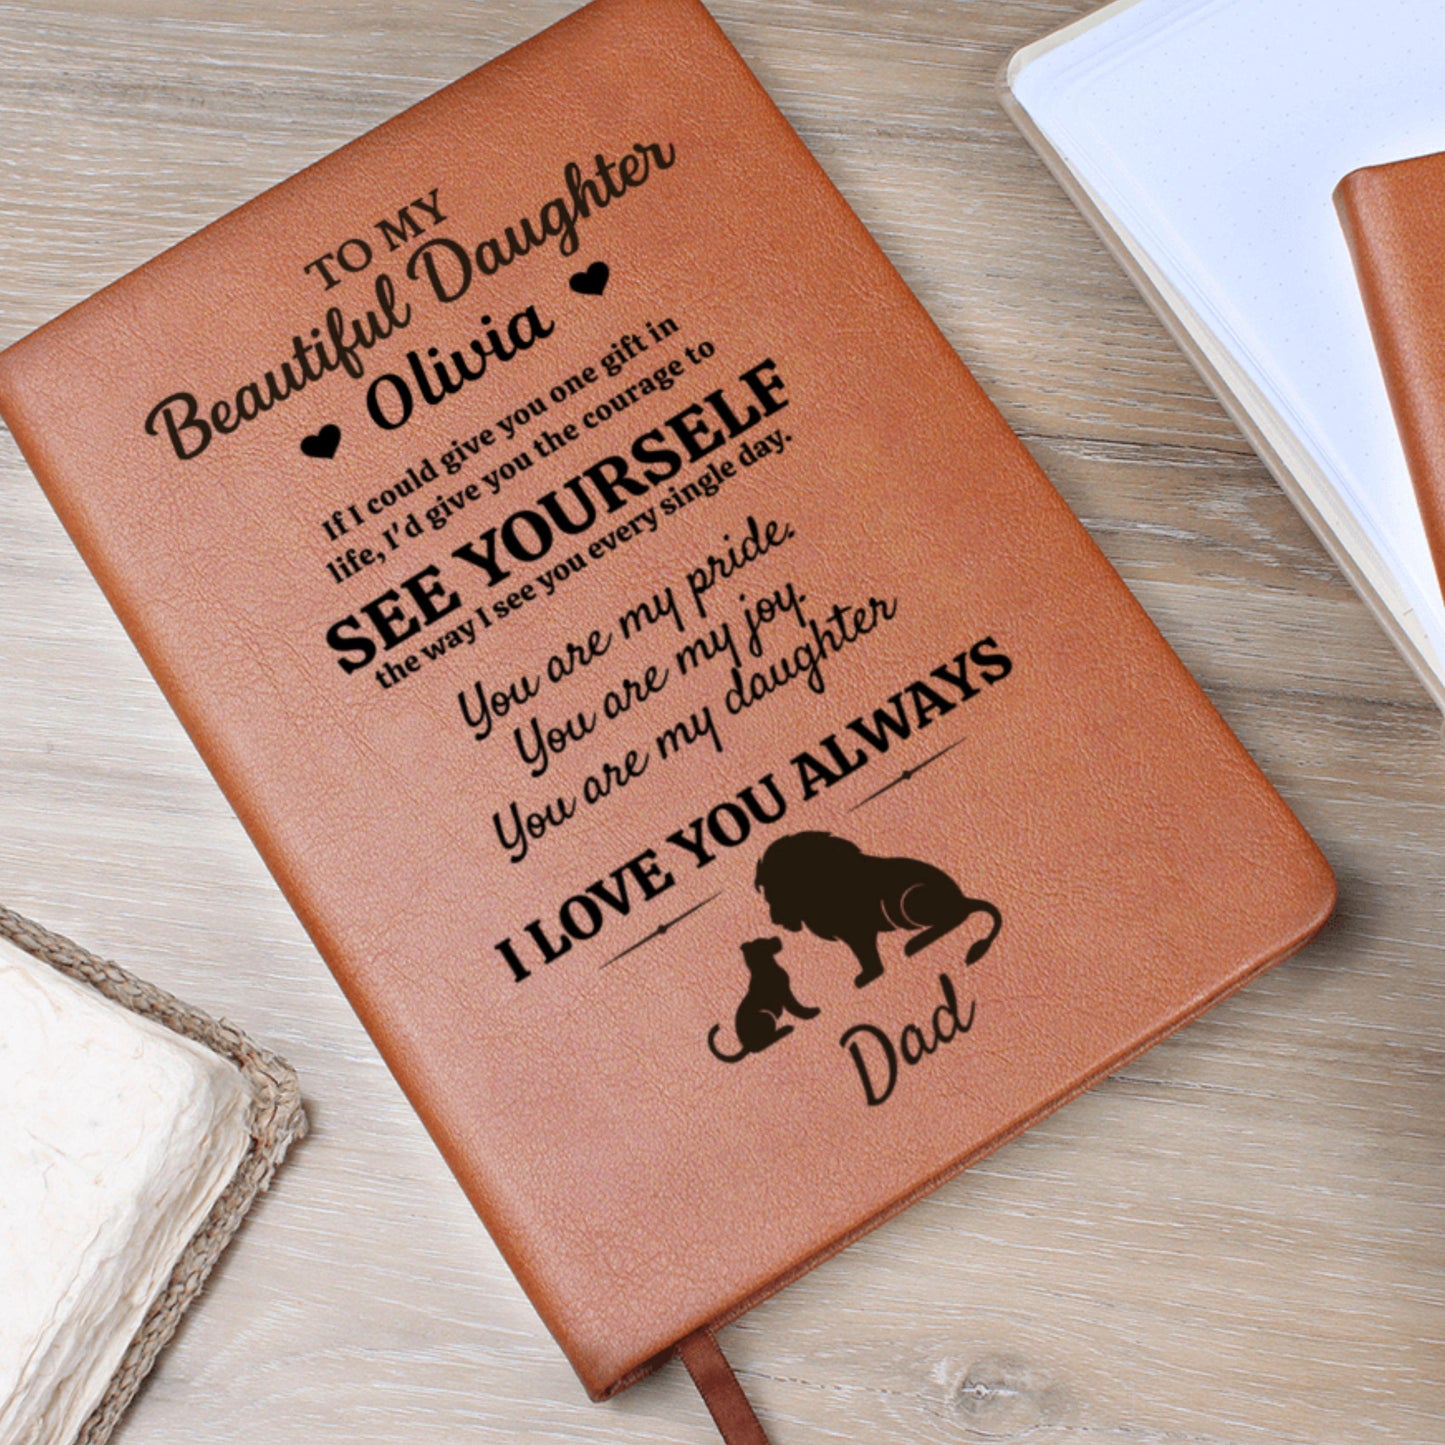 TO MY
Beautiful Daughter
Olivia
If I could give you one gift in
life, I'd give you the courage to
SEE YOURSELF
the way I see you every single day.
You are my pride.
You are my joy.
You are my daughter
I LOVE YOU ALWAYS
Dad